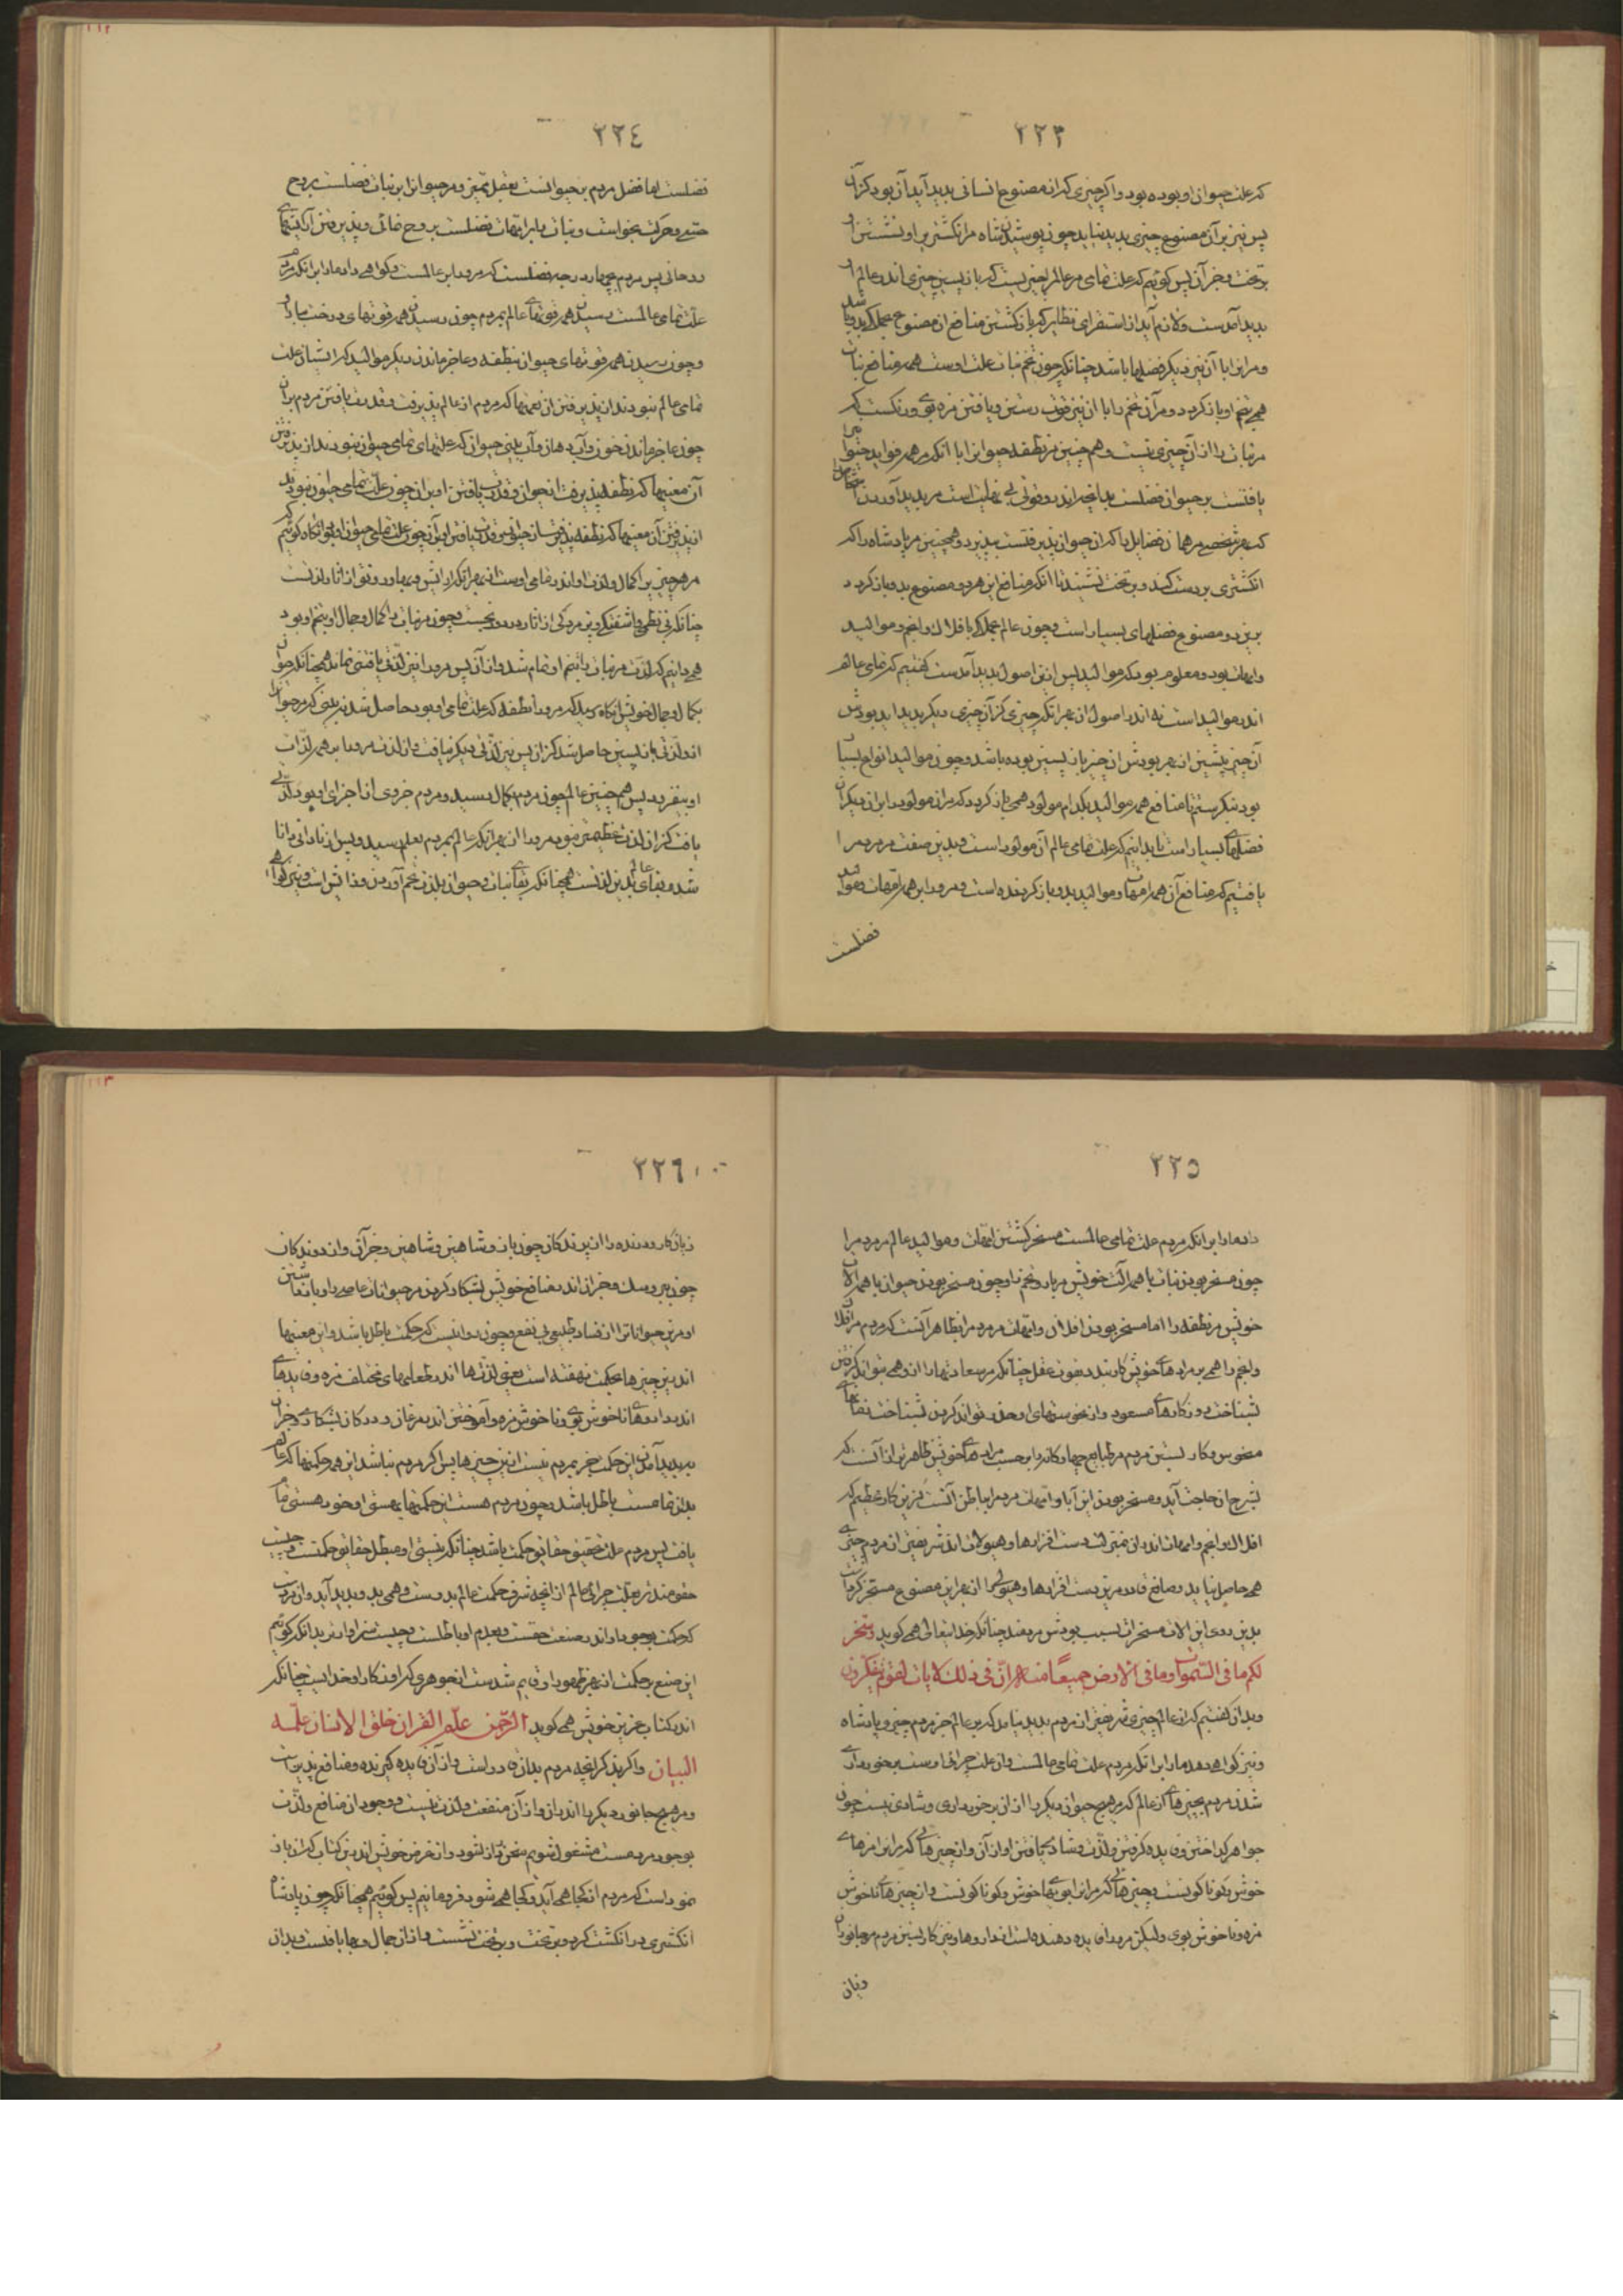 ۲۲۳
که علت حیوان او بوده بود و اگر چیزی که از مصنوع انسانی پدید آید آن بود کزان
پس نیز بر آن مصنوع چیزی پدید نیاید چون پوشیدن شاه مر انگشتری را و نشستن او
بر تخت و جز آن پس گوئیم که علت تمامی مر عالم را چیزیست که باز پسین چیزی اندر عالم او
پدید آمدست و لازم آید از استقرای نظایر که باز گشتن منافع از مصنوع بجملگی بدو باشد
و مر او را با آن نیز دیگر فضلها باشد چنانکه چون تخم نبات علت اوست همه منافع نبات
همی بتخم او باز گردد و مر آن تخم را با آن نیز قوت رستن و یافتن مزه و بوی و رنگست که
مر نبات را از آن چیزی نیست و همچنین مر نطفه حیوان را با آنکه مر همه فواید حیوانی را
یافتست بر حیوان فضلست بدانچه اندرو قوتی بی نهایت است مر پدید آوردن اشخاص را
که هر شخصی مر همان فضایل را که آن حیوان پذیرفتست بپذیرد و همچنین مر پادشاه را که
انگشتری بر دست کند و بر تخت نشیند با آنکه منافع این هر دو مصنوع بدو باز گردد
برین دو مصنوع فضلهای بسیار است و چون عالم بجملگی با افلاک و انجم و موالید
و امهات بود و معلوم بود که موالید پس از این اصول پدید آمدست گفتیم که تمامی عالم
اندر موالید است نه اندر اصول از بهر آنکه چیزی کز آن چیزی دیگر پدید آید بودش
آن چیز پیشین از بهر بودش آن چیز باز پسین بوده باشد و چون موالید انواع بسیار
بود بنگرستیم تا منافع همه موالید بکدام مولود همی باز گردد که مر آن مولود را بر آن دیگران
فضلهای بسیار است تا بدانیم که علت تمامی عالم آن مولود است و بدین صفت مر مردم را
یافتیم که منافع آن همه امهات و موالید بدو باز گردنده است و مر او را بر همه امهات و موالید
فضلست
۲۲۴
فضلست اما فضل مردم بر حیوانست بعقل ممیز و مر حیوان را بر نبات فضلست بروح
حسی و حرکت بخواست و نبات را بر امهات فضلست بروح نمائی و پذیرفتن آرایشهای
روحانی پس مردم بچهار درجه فضلست که مر او را بر عالمست و گواهی داد ما را بر آنکه مردم
علت تمامی عالمست رسیدن همه قوتهای عالم بمردم چون رسیدن همه قوتهای درخت ببار او
و چون رسیدن همه قوتهای حیوان بنطفه و عاجز ماندن دیگر موالید که ایشان علت
تمامی عالم نبودند از پذیرفتن آن نعمتها که مردم از عالم پذیرفت و قدرت یافتن مردم بر آن
چون عاجز ماندن خون و آب دهان و آب بینی حیوان که علتهای تمامی حیوان نبودند از پذیرفتن
آن معنیها که نطفه پذیرفت از حیوان و قدرت یافتن او بر آن چون علت تمامی حیوان نبودند
از پذیرفتن آن معنیها که نطفه پذیرفتش از حیوانیش و قدرت یافتن او بر آن چون علت تمامی حیوان او بود آنگاه گوئیم که
مر هر چیزی را کمال و لذت او اندر تمامی اوست از بهر آنکه آرایش و بها و رونق از آثار لذتست
چنانکه بی نظمی و آشفتگی و پژمردگی از آثار درد و رنجست و چون مر نبات را کمال و جمال او بتخم او بود
همی دانیم که لذت مر نبات را بتخم او تمام شد و از آن پس مر او را نیز لذتی یافتنی نماند همچنانکه حیوان
بکمال و جمال خویش آنگاه رسد که مر او را نطفه که علت تمامی او بود حاصل شد نه بینی که مر حیوان را
اندر لذتی باز پسین حاصل شد کزان پس نیز لذتی دیگر نیافت و آن لذت مر او را بر همه لذات
او بیفزود پس همچنین عالم چون مردم بکمال رسید و مردم جزوی از اجزای او بود لذتی
یافت کزان لذت عظیمتر نبود مر او را از بهر آنکه عالم بمردم بعلم رسید و پس از نادانی دانا
شد و بقای عالم بدین لذتست همچنانکه بقای نبات و حیوان بلذت تخم آوردن و مذاقتن است و نیز گواهی
۲۲۵
داد ما را بر آنکه مردم علت تمامی عالمست مسخر گشتن امهات و موالید عالم مر مردم را
چون مسخر بودن نبات با همه آلت خویش مر بار و تخم را و چون مسخر بودن حیوان با همه آلات
خویش مر نطفه را اما مسخر بودن افلاک و امهات مر مردم را بظاهر آنست که مردم مر افلاک
و انجم را همی بر مرادهای خویش کار بندد بقوت عقل چنانکه مر سعادتها را ازو همی بتواند گرفتن
بشناخت روزگارهای مسعود و از نحوستهای او حذر تواند کردن بشناخت وقتهای
منحوس و کار بستن مردم مر طبایع چهارگانه را بر حسب مرادهای خویش ظاهرتر از آنست که
بشرح آن حاجت آید و مسخر بودن این آبا و امهات مر مردم را بباطن آنست کزین کار عظیم که
افلاک و انجم و امهات اندر آنند بمنزلت دست افزارها و هیولات اند شریفتر از مردم چیزی
همی حاصل نیاید و صانع قادر مر این دست افزارها و هیولی را از بهر این مصنوع مسخر کرده است
بدین روی این آلات مسخرات بسبب بودش مردمند چنانکه خدایتعالی همی گوید وسخر
لکم ما فی السموات وما فی الارض جمیعًا منه ان فی ذلک لایات لقوم یتفکرون
و بدان گفتیم که از عالم چیزی شریفتر از مردم پدید نیاید که برین عالم جز مردم چیزی پادشاه
و نیز گواهی دهد ما را بر آنکه مردم علت تمامی عالمست و آن علت جزافی اوست برخورداری
شدن مردم بچیزهای از عالم که مر هیچ حیوانی دیگر را از آن برخورداری و شادی نیست چون
جواهر گداختنی و فایده گرفتن و لذت و شادی یافتن او از آن و آن چیزهائی که مر آن را مزهای
خوش گوناگونست و چیزهائی که مر آن را بویهای خوش و گوناگونست و آن چیزهای ناخوش
مزه و ناخوش بوی ولیکن مر او را فایده دهنده است از داروها و نیز کار بستن مردم مر جانوران
و زیان
۲۲۶
زیان کار و درنده را از پرندگان چون باز و شاهین و شاهین و جز آن و از دوندگان
چون یوز و سگ و جز آن اندر منافع خویش بشکار کردن مر حیوانات عاصی را و باز داشتن
او مر این حیوانات را از فساد طبیعی بی نفع و چون روا نیست که حکمت باطل باشد و این معنیها
اندرین چیزها بحکمت نهفته است یعنی لذتها اندر طعامهای مختلف مزه و فایدهای
اندر داروهای ناخوش بوی و ناخوش مزه و آموختن اندر مرغان و ددگان بشکار و جز آن
پدید آمدن این حکمت جز بمردم نیست ازین چیزها پس اگر مردم نباشد این همه حکمتها که عالم
بدان تمامست باطل باشد و چون مردم هست این حکمتها بهستی او خود هستی تمام
یافت پس مردم علت تحقیق حقایق حکمت باشد چنانکه نیستی او مبطل حقایق حکمتست و چیست
حقومندتر بعلت جزافی عالم از آنچه شرف حکمت عالم بدوست و همی بدو پدید آید و آن مردمست
که حکمت بوجود او اندر صنعت حقست و بعدم او باطلست و چیست سزاوارتر بدانکه گوئیم
این صنع پر حکمت از بهر ظهور او قایم شدست از جوهری که او کار خدایست چنانکه
اندر کتاب عزیز خویش همی گوید الرحمن علم القرآن خلق الانسان علمه
البیان و اگر بذکر آنچه مردم بدان قادر است و از آن فایده گیرنده و منافع پذیرست
و مر هیچ جانور دیگر را اندر آن و از آن منفعت و لذت نیست و وجود آن منافع و لذت
بوجود مردمست مشغول شویم سخن دراز شود و از غرض خویش اندرین کتاب که آن باز
نمود است که مردم از کجا همی آید و کجا همی شود فرو مانیم پس گوئیم همچنانکه چون پادشاه
انگشتری در انگشت کرد و بر تخت و بر تخت نشست و از آن جمال و بها یافتست و بدان